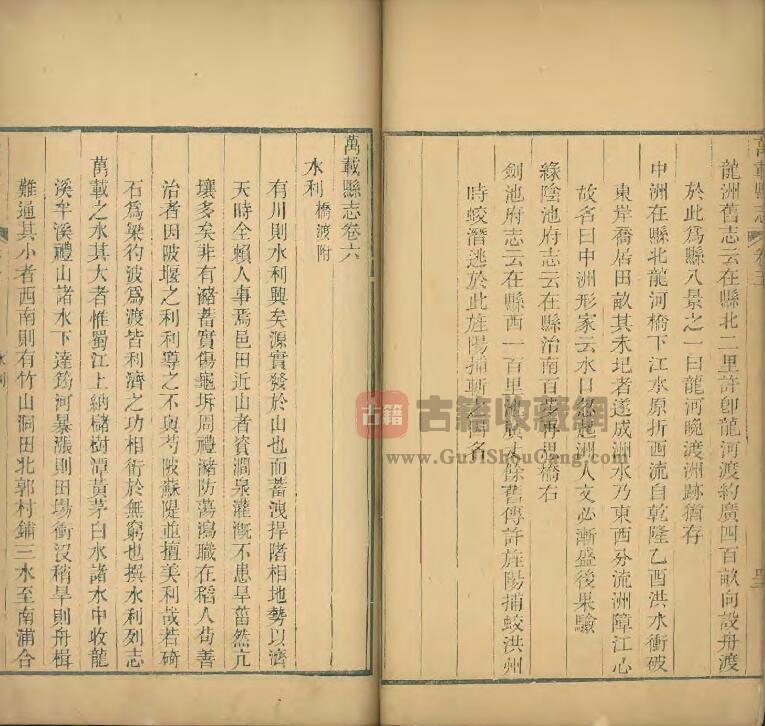 龍洲舊志云在縣北二里許卽龍河渡約廣四百畝向設舟渡
於此爲縣八景之一曰龍河晚渡洲跡猶存
中洲在縣北龍河橋下江水原折西流自乾隆乙酉洪水衝破
東岸喬居田畝其未圮者遂成洲水乃東西分流洲障江心
故名曰中洲形家云水口忽起洲人文必漸盛後果驗
綠陰池府志云在縣治南百步再思橋右
劍池府志云在縣西一百里池廣丈餘舊傳許旌陽捕蛟洪州
時蛟潛逃於此旌陽捕斬
名
萬載縣志
萬載縣志卷六
水利 橋渡附
有川則水利興矣源實發於山也而蓄洩捍陼相地勢以濟
天時全賴人事焉邑田近山者資澗泉灌漑不患旱菑然亢
壤多矣非有瀦蓄實傷龜坼周禮瀦防蕩瀉職在稻人苟善
治者因陂堰之利利導之不與芍陂蘇隄並擅美利哉若碕
石爲梁彴波爲渡皆利濟之功相衍於無窮也撰水利列志
萬載之水其大者惟蜀江上納儲樹潭黃茅白水諸水中收龍
溪牟溪禮山諸水下達筠河暴漲則田塲衝沒稍旱則舟楫
難通其小者西南則有竹山洞田北郭村鋪三水至南浦合
古籍
古籍收藏網
www.GuJiShouCang.com